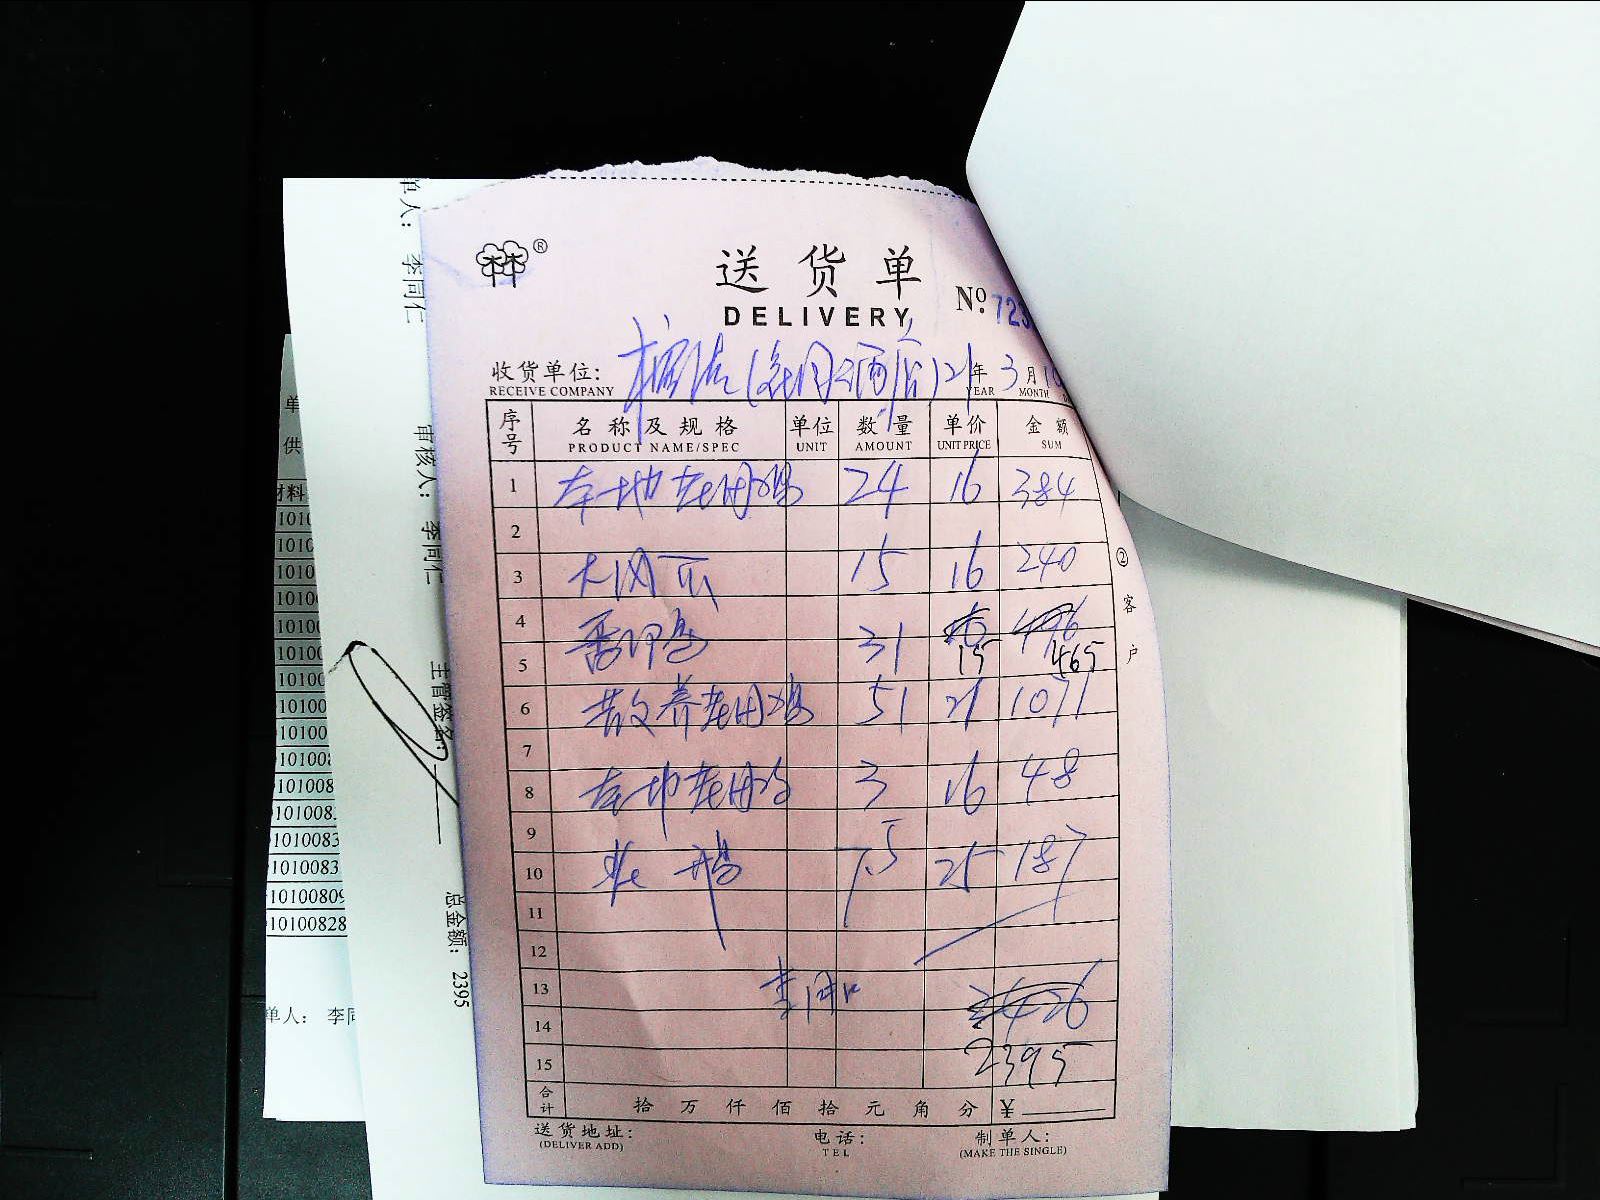 送货单
DELIVERY
No. 723
收货单位:
RECEIVE COMPANY
21年 3月
YEAR MONTH
序号 名称及规格 单位 数量 单价 金额
PRODUCT NAME/SPEC UNIT AMOUNT UNIT PRICE SUM
1 本地老母鸡 24 16 384
2
3 15 16 240
4 番鸭 31
5 15 465
6 散养老母鸡 51 21 1071
7
8 本地老母鸡 3 16 48
9
10 7.5 25 187
11
12
13 2426
14
15 2395
合计 拾 万 仟 佰 拾 元 角 分 ¥
送货地址: 电话: 制单人:
(DELIVER ADD) TEL (MAKE THE SINGLE)
②客户
单人: 李同仁
审核人: 李同仁
主管签名:
总金额: 2395
单
供
材料
1010
1010
1010
1010
10100
10100
10100
10100
10100
101008
101008
101008
1010083
1010083
10100809
10100828
单人: 李同